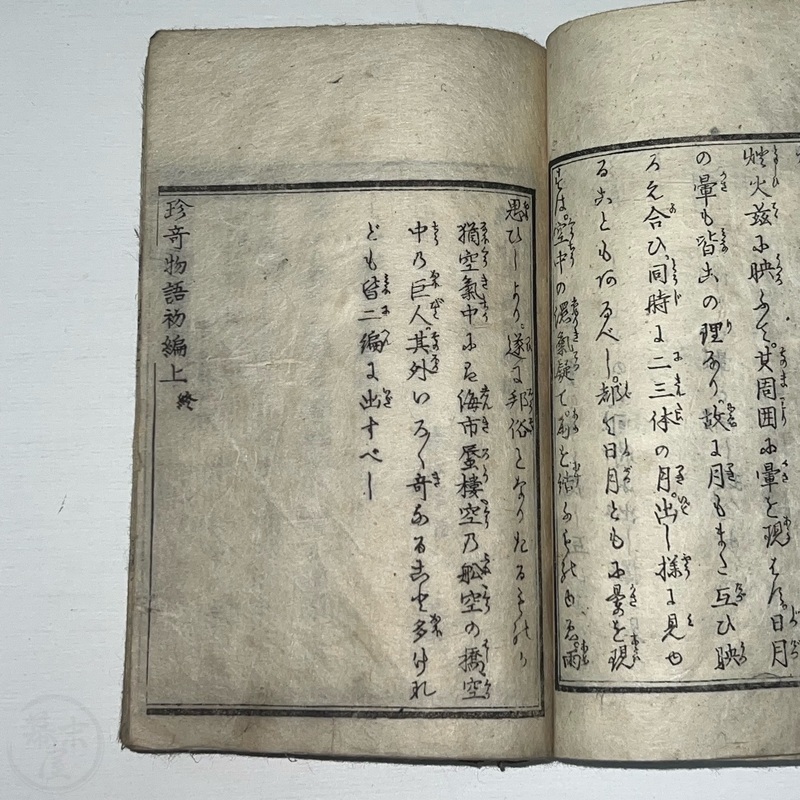 燈火茲に映ふて。其周囲に暈を現はす。日月
の暈も皆此の理なり。故に月もまた互ひ映
ろえ合ひ、同時に二三体の月。出し様に見ゆ
ることもあるべし。都て日月ともに暈を現
はすは。空中の湿気凝て。雨を結ふものも
思ひしより。遂に邦俗となりたるものか
猶空氣中にハ海市蜃樓空乃船空の橋空
中乃巨人其外いろ〱奇なること多けれ
ども皆二編に出すべし
珍奇物語初編上 終